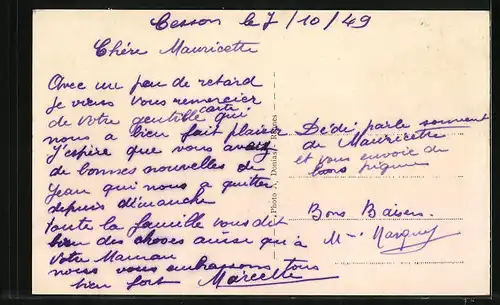 Cesson le 7/10/49
Chère Mauricette
Avec un peu de retard
je viens vous remercier
de votre gentille carte qui
nous a bien fait plaisir
J'espère que vous avez
de bonnes nouvelles de
Jean qui nous a quitter
depuis dimanche
toute la famille vous dit
bien des choses aussi qu'à
votre Maman
nous vous embrassons tous
bien fort Marcelle
Photo A. Donias - Rennes
Dédé parle souvent
de Mauricette
et vous envoie de
bons
Bons Baisers.
à Mme